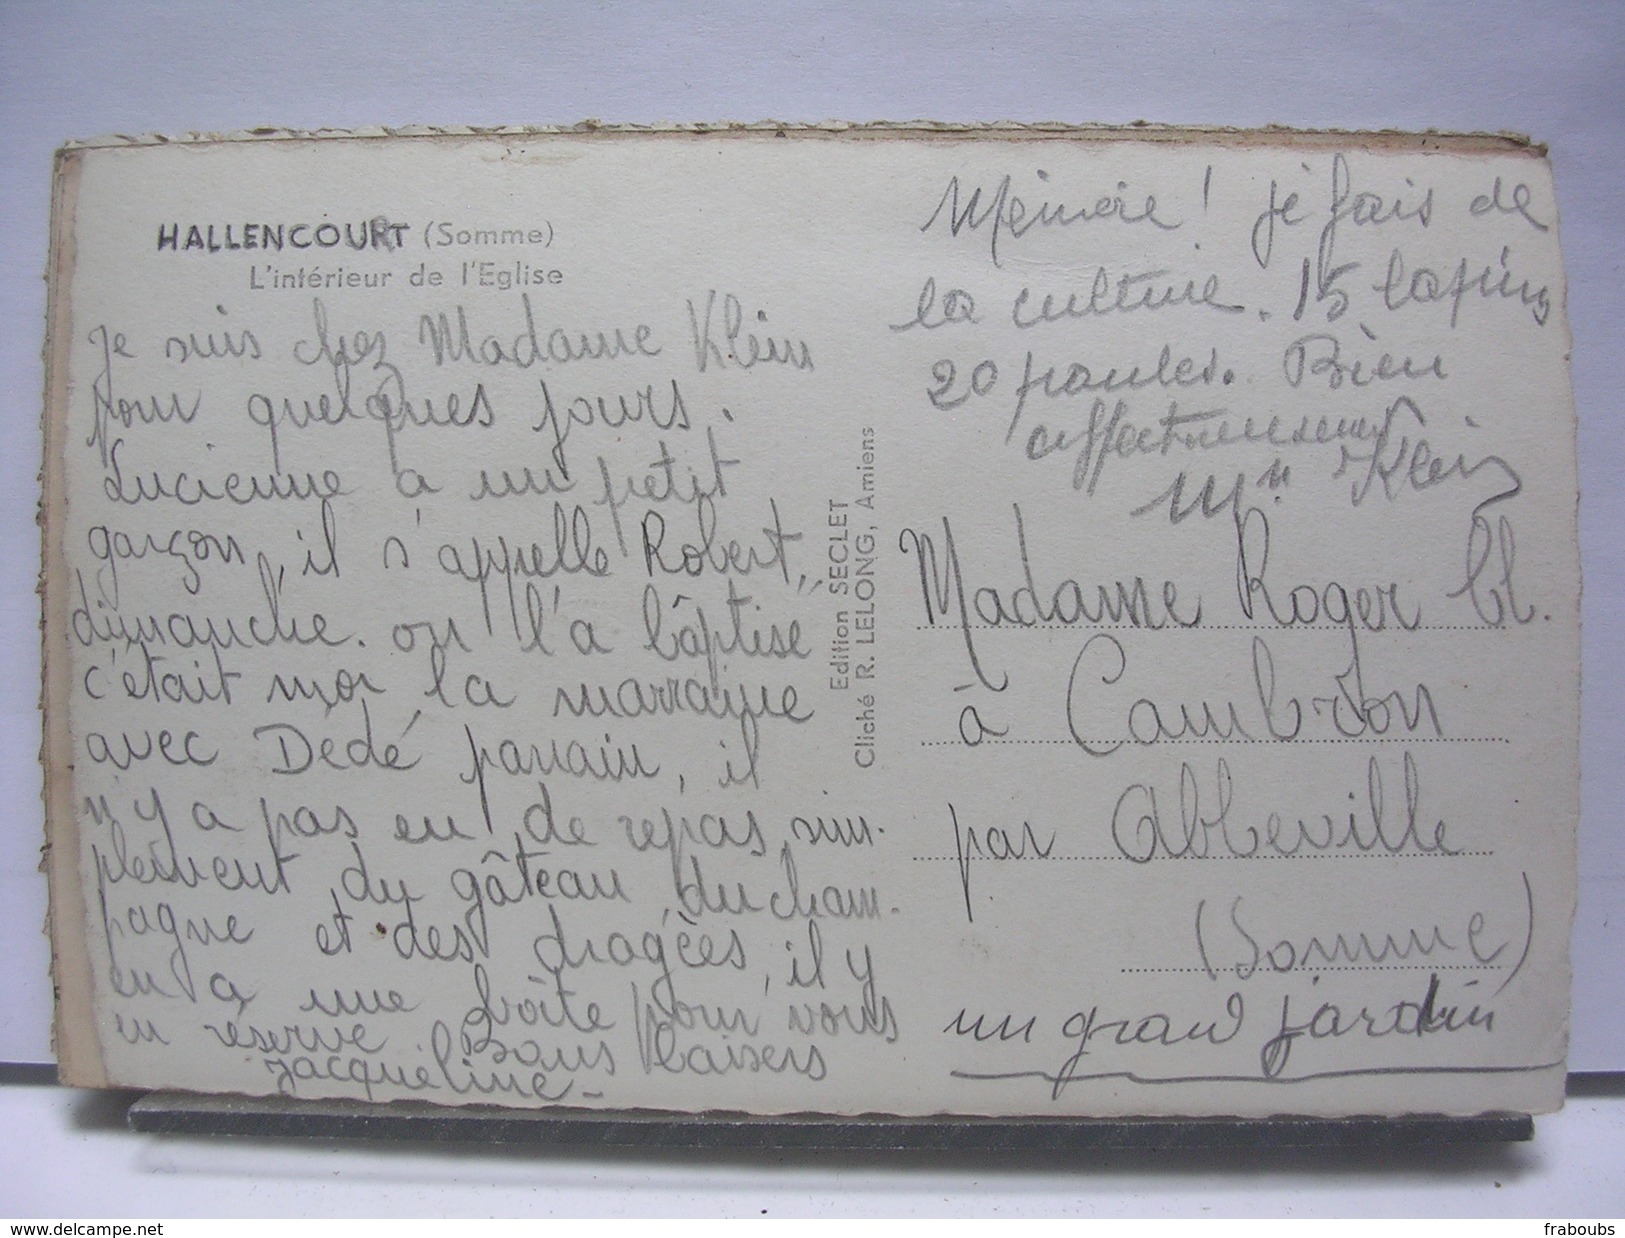 HALLENCOURT (Somme)
L'intérieur de l'Eglise
Je suis chez Madame Klein
pour quelques jours.
Lucienne a un petit
garçon, il s'appelle Robert,
dimanche. on l'a bâptisé
c'était moi la marraine
avec Dédé parrain, il
n'y a pas eu de repas sim-
plement du gâteau, du cham-
pagne et des dragèes, il y
en a une boîte pour vous
en réserve Bons baisers
Jacqueline -
Edition SECLET
Cliché R. LELONG, Amiens
Mémère ! je fais de
la culture. 15 lapins
20 poules. Bien
affectueusement
Mme Klein
Madame Roger Cl.
à Cambron
par Abbeville
(Somme)
un grand jardin
www.delcampe.net
fraboubs